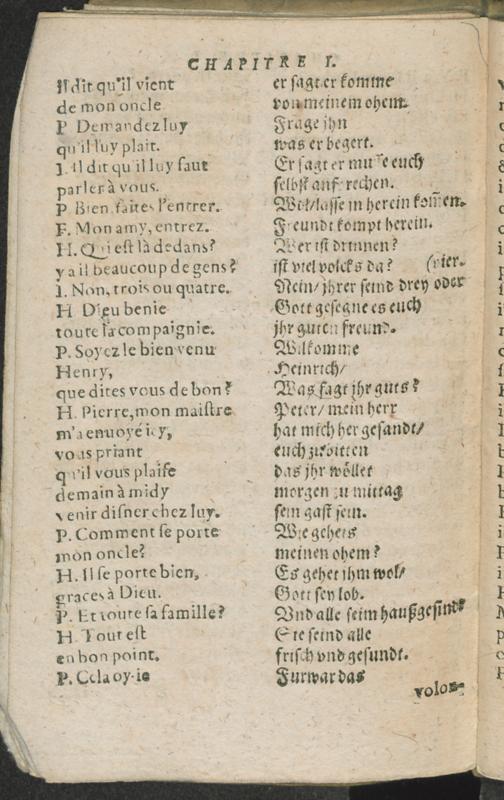 CHAPITRE I.
Il dit qu'il vient
de mon oncle
P Demandez luy
qu'il luy plait.
I. Il dit qu'il luy faut
parler à vous.
P. Bien faites l'entrer.
F. Mon amy, entrez.
H. Qui est là dedans?
y a il beaucoup de gens?
I. Non, trois ou quatre.
H Dieu benie
toute la compaignie.
P. Soyez le bien venu
Henry,
que dites vous de bon?
H. Pierre, mon maistre
m'a enuoyé icy,
vous priant
qu'il vous plaise
demain à midy
venir disner chez luy.
P. Comment se porte
mon oncle?
H. Il se porte bien,
graces à Dieu.
P. Et toute sa famille?
H. Tout est
en bon point.
P. Cela oy-ie
er sagt er komme
von meinem ohem.
Frage jhn
was er begert.
Er sagt er musse euch
selbst ansprechen.
Wol/lasse in herein kom̃en.
Freundt kompt herein.
Wer ist drinnen?
ist viel volcks da? (vier.
Nein/ jhrer seind drey oder
Gott gesegne es euch
jhr guten freund.
Wilkomme
Heinrich/
Was sagt jhr guts?
Peter/ mein herr
hat mich her gesandt/
euch zu bitten
das jhr wöllet
morgen zu mittag
sein gast sein.
Wie gehets
meinen ohem?
Es gehet ihm wol/
Gott sey lob.
Vnd alle seim haußgesind?
Sie seind alle
frisch vnd gesundt.
Furwar das
volon-